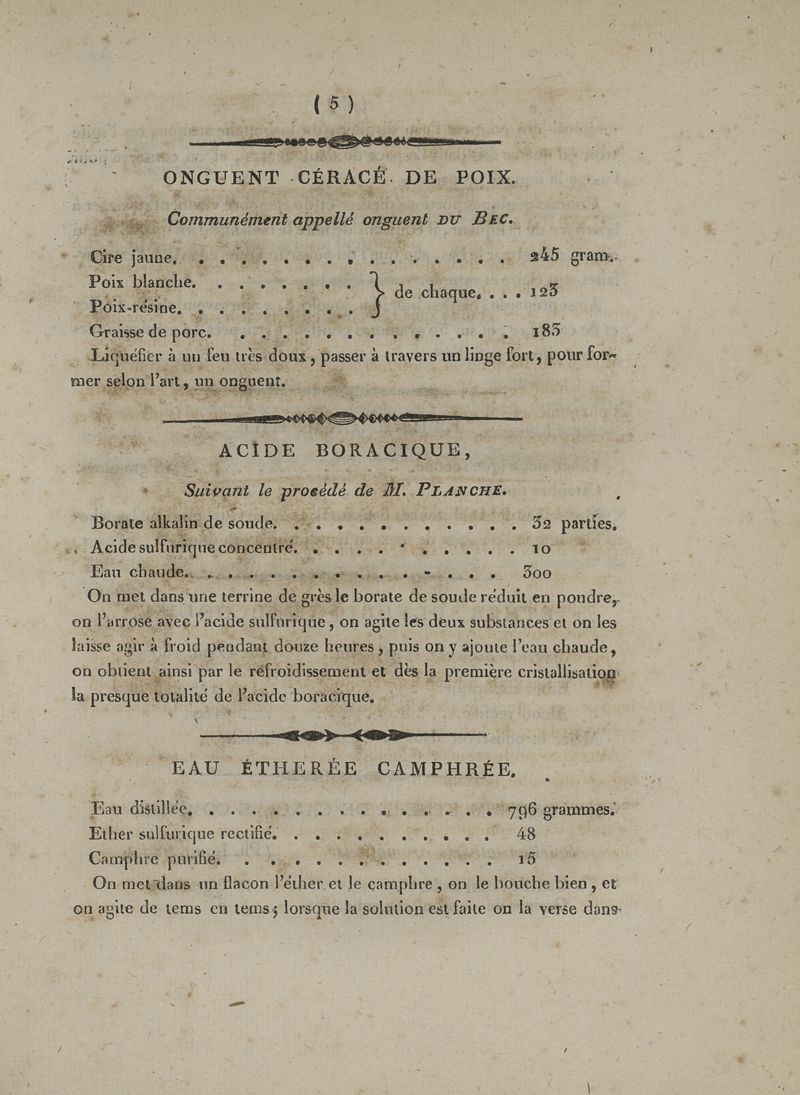 ( 5 )
ONGUENT CÉRACÉ DE POIX.
Communément appellé onguent DU BEC.
Cire jaune. . . . . . . . . . . . . . . . 245 gram.
Poix blanche. . . . . . . . } de chaque. . . . 123
Poix-résine. . . . . . . . .
Graisse de porc. . . . . . . . . . . . . . 183
Liquéfier à un feu très doux, passer à travers un linge fort, pour for-
mer selon l'art, un onguent.
ACIDE BORACIQUE,
Suivant le procédé de M. PLANCHE.
Borate alkalin de soude. . . . . . . . . . . . 32 parties.
Acide sulfurique concentré. . . . . . . . . . . 10
Eau chaude. . . . . . . . . . . . . . . . 300
On met dans une terrine de grès le borate de soude réduit en poudre,
on l'arrose avec l'acide sulfurique, on agite les deux substances et on les
laisse agir à froid pendant douze heures, puis on y ajoute l'eau chaude,
on obtient ainsi par le refroidissement et dès la première cristallisation
la presque totalité de l'acide boracique.
EAU ÉTHERÉE CAMPHRÉE.
Eau distillée. . . . . . . . . . . . . . . 796 grammes.
Ether sulfurique rectifié. . . . . . . . . . . 48
Camphre purifié. . . . . . . . . . . . . . 15
On met dans un flacon l'éther et le camphre, on le bouche bien, et
on agite de tems en tems; lorsque la solution est faite on la verse dans